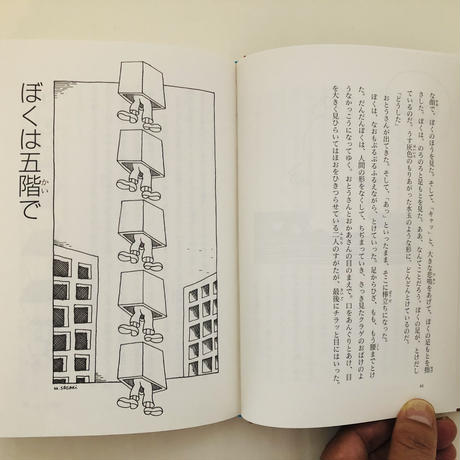 な顔で、ぼくのほうを見た。そして、「キャッ」と、大きな悲鳴をあげて、ぼくの足もとを指
さした。ぼくは、のろのろと足もとを見た。ああ、なんてことだろう。ぼくの足が、とけだし
ているのだ。うす灰色のもりあがった水玉のような形に、どんどんとけているのだ。
「どうした」
おとうさんが出てきた。そして、「あっ」といったまま、そこに棒立ちになった。
ぼくは、なおもぶるぶるふるえながら、とけていった。足からひざ、もも、もう腰までとけ
た。だんだんぼくは、人間の形をなくして、ちぢまっていき、さっき見たクラゲのおばけのよ
うなかっこうになってゆく。おとうさんとおかあさんの目のまえで。口をあんぐりとあけ、目
を大きく見ひらいてはほおをひきつらせている二人のすがたが、最後にチラッと目にはいった。
ぼくは五階で
かい
M.SASAKI